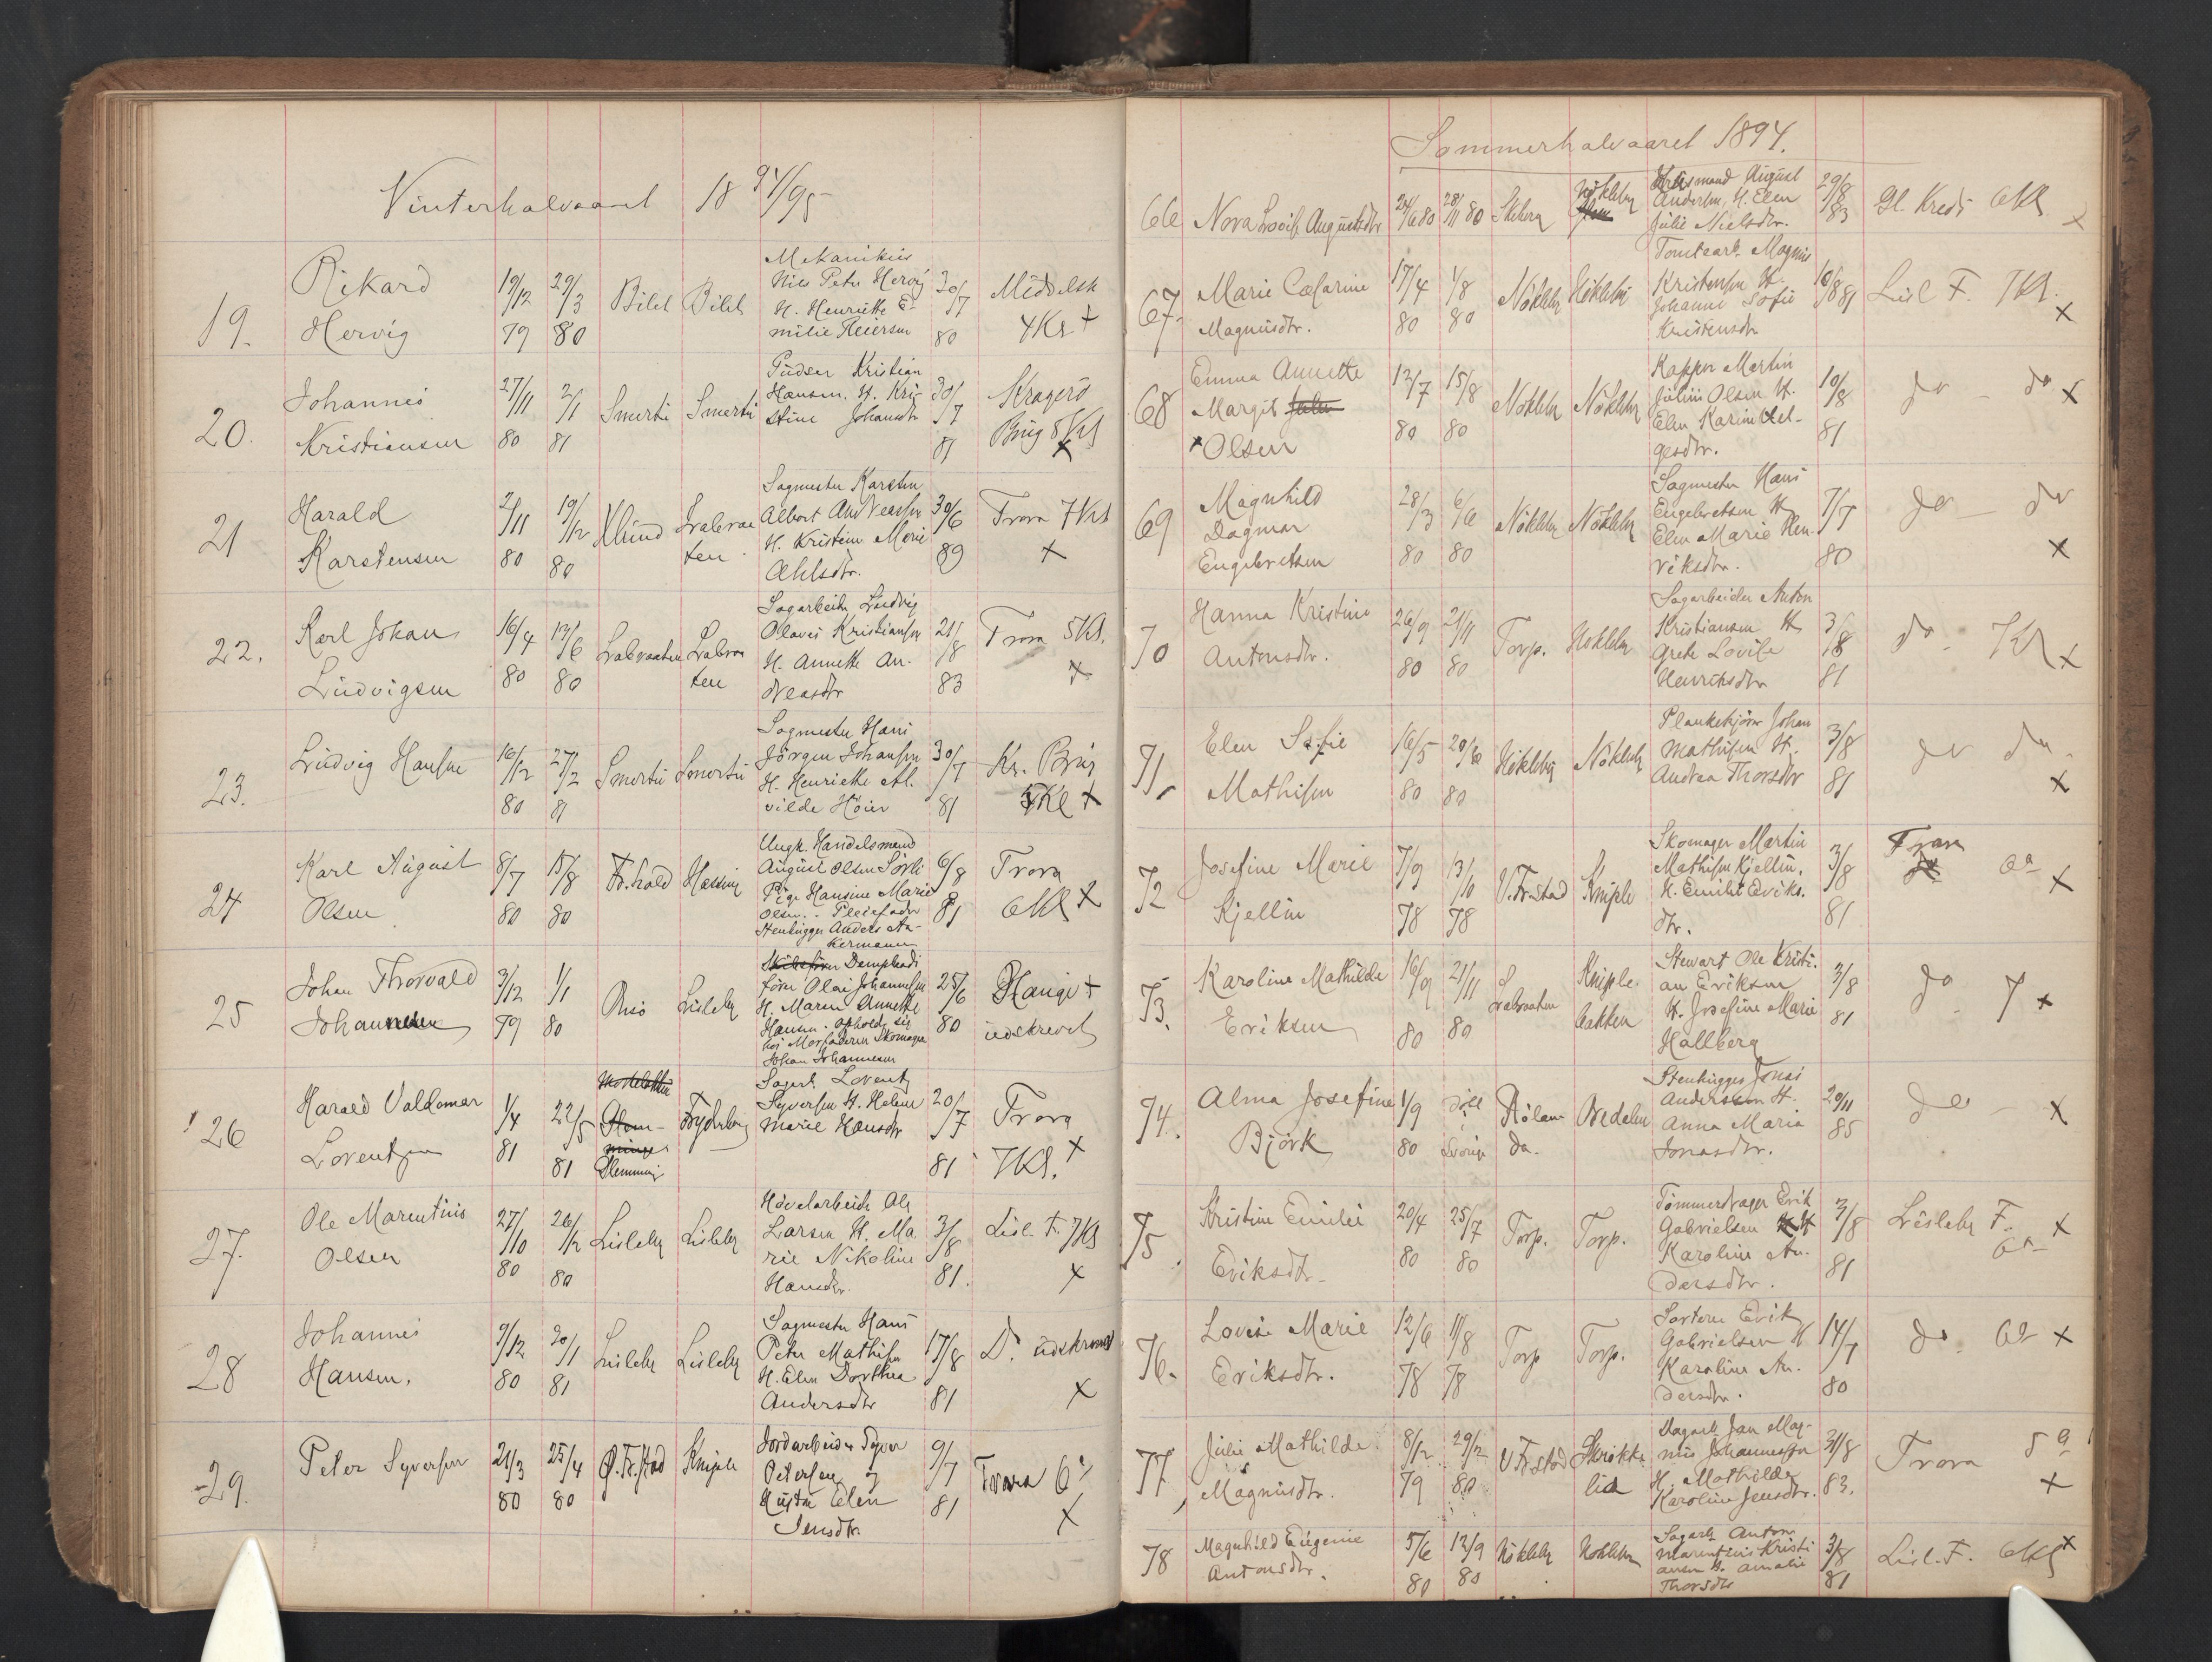 Vinterhalvaaret 18 94/95
19. Rikard Hervig 19/12 79 29/3 80 Bilet Bilet
Mekanikus
Nils Peter Hervig
H. Henriette E-
milie Reiersen
30/7 80 Middelsk 4 Kl +
20. Johannes Kristiansen 27/11 80 2/1 81 Smertu Smertu
Pudser Kristian
Hansen. H. Kri-
stine Johansdtr
30/7 81 Kragerö Brug 5 Kl x
21 Harald Karstensen 2/11 80 19/12 80 Lund Labraa ten.
Sagmester Karsten
Albert Andreassen
H. Kristine Marie
Ahlsdtr.
30/6 89 Trara 7 Kl x
22. Karl Johan Ludvigsen 16/4 80 13/6 80 Labraaten Labraa ten
Sagarbeider Ludvig
Olaves Kristiansen
H. Annette An-
dreasdtr
21/8 83 Trara 5 Kl. x
23. Ludvig Hansen 16/12 80 27/2 81 Smertu Smertu
Sagmester Hans
Jörgen Johansen
H. Henriette Al-
vilde Höier
30/7 81 Kr. Brug Kl x
24 Karl August Olsen 8/7 80 15/8 80 Fr.hald Hassing
Ungk. Handelsmand
August Olsen Sörli
Pige Hansine Marie
Olsen. Pleiefader
Stenhugger Anders An-
kermann
6/8 81 Trara 6 Kl x
25 Johan Thorvald Johannesen 3/12 79 1/1 80 Onsö Lisleby
Skibsförer Dampskibs
förer Olai Johannesen
H. Maren Annette
Hansen. opholder sig
hos Morfaderen Skomager
Johan Johannesen
25/6 80 Hauge + udskrevet
26 Harald Valdemar Lorentzen 1/4 81 22/5 81 Glemminge Frydenberg
Sagarb. Lorentz
Syversen H. Helene
Marie Hansdtr
20/7 81 Trara 7 Kl. x
27. Ole Marentius Olsen 27/10 80 26/12 80 Lisleby Lisleby
Hövelarbeider Ole
Larsen H. Ma
rie Nikoline
Hansdtr.
3/8 81. Lisl. F. 7 Kl x
28 Johannes Hansen. 9/12 80 20/1 81 Lisleby Lisleby
Sagmester Hans
Peter Mathisen
H. Elen Dorthea
Andersdtr
17/8 81 Do. udskrevet x
29. Peter Syversen 21/3 80 25/4 80 Ø. Fr.stad Kniple
Jordarbeider Syver
Petersen og
Hustru Elen
Jensdtr.
9/7 81 Trara 6 x
Sommerhalvaaret 1894.
66 Nora Lovise Augustsdtr 24/6 80 28/11 80 Skiberg Nökleby
Husmand August
Andersen, H. Elen
Julie Nielsdtr.
29/8 83 Gl. Kreds 6 Kl x
67. Marie Casarine Magnusdtr. 17/4 80 1/8 80 Nökleby Nökleby
Tomtearb. Magnus
Kristensen H.
Johanne Sofie
Kristensdtr
10/8 81 Lisl F. 7 Kl. x
68 Emma Annette Margit Olsen 12/7 80 15/8 80 Nökleby Nökleby
Kapper Martin
Julius Olsen H.
Elen Karine Hel-
gesdtr.
10/8 81 do - do x
69 Magnhild Dagmar Engebretsen 28/3 80 6/6 80 Nökleby Nökleby
Sagmester Hans
Engebretsen H
Elen Marie Hen-
riksdtr.
7/7 80 do - do x
70 Hanna Kristine Antonsdtr. 26/9 80 21/11 80 Torp. Nökleby
Sagarbeider Anton
Kristiansen H
Grete Lovise
Henriksdtr
3/8 81 do - 7 Kl x
71. Elen Sofie Mathisen 16/5 80 20/6 80 Nökleby Nökleby
Plankekjörer Johan
Mathisen H.
Andrea Thorsdtr
3/8 81 do do - x
72 Josefine Marie Kjellin 7/9 78 13/10 78 V. Fr.stad Kniple
Skomager Martin
Mathisen Kjellin,
H. Emilie Eriks.
dtr.
3/8 81 Trara 6 x
73. Karoline Mathilde Eriksen 16/9 80 21/11 80 Labraaten Kniple-bakken
Stewart Ole Kristi-
an Eriksen
H. Josefine Marie
Hallberg
3/8 81 do 7 x
74. Alma Josefine Björk 1/9 80 döbt i Sverige Rolan da. Bredalen
Stenhugger Jonas
Anderssen H.
Anna Maria
Jonasdtr.
20/11 85 do - x
75. Kristine Emilie Eriksdtr. 20/4 80 25/7 80 Torp. Torp.
Tömmertrager Erik
Gabrielsen H
Karoline An-
dersdtr.
3/8 81 Lisleby F. 6 x
76. Lovise Marie Eriksdtr. 12/6 78 11/8 78 Torp Torp.
Sorterer Erik
Gabrielsen H
Karoline An-
dersdtr.
14/7 80 do. 6 x
77, Julie Mathilde Magnusdtr. 8/12 79 29/2 80 V Fr.stad Skrikke lia
Dagarb. Jan Mag-
nus Johannessen
H. Mathilde
Karoline Jensdtr.
31/8 83. Trara 5 x
78 Magnhild Eugenie Antonsdtr. 5/6 80 12/9 80 Nökleby Nökleby
Sagarb. Anton
Marentius Kristi
ansen H. Amalie
Thorsdtr
3/8 81 Lisl. F. 6 Kl x